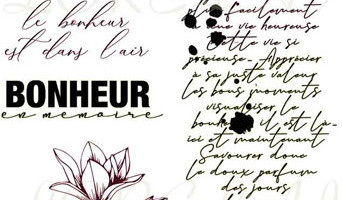 le bonheur
est dans l'air
BONHEUR
en mémoire
plus facilement
à une vie heureuse
Cette vie si
précieuse - Apprécier
à sa juste valeur
les bons moments
visualiser le
bonheur il est là-
ici et maintenant
Savourer donc
le doux parfum
des jours